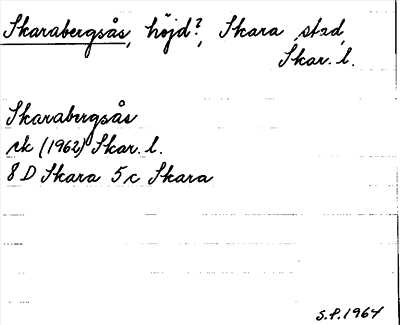 Skarabergsås, höjd?, Skara stad,
Skar. l.
Skarabergsås
rk (1962) Skar. l.
8 D Skara 5 c Skara
S.P. 1964